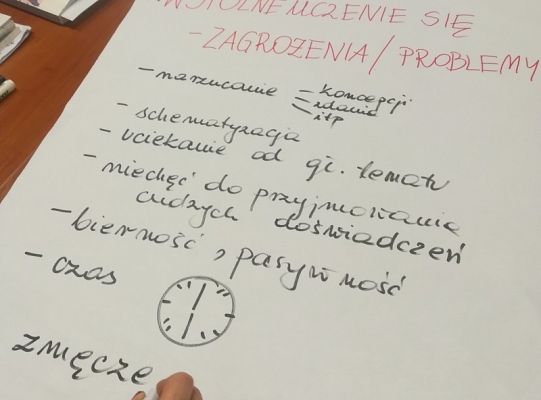 WSPÓLNE UCZENIE SIĘ
-ZAGROŻENIA/PROBLEMY
- narzucanie - koncepcji
- zdania
- itp
- schematyzacja
- uciekanie od gł. tematu
- niechęć do przyjmowania
cudzych doświadczeń
- bierność, pasywność
- czas
zmęcze